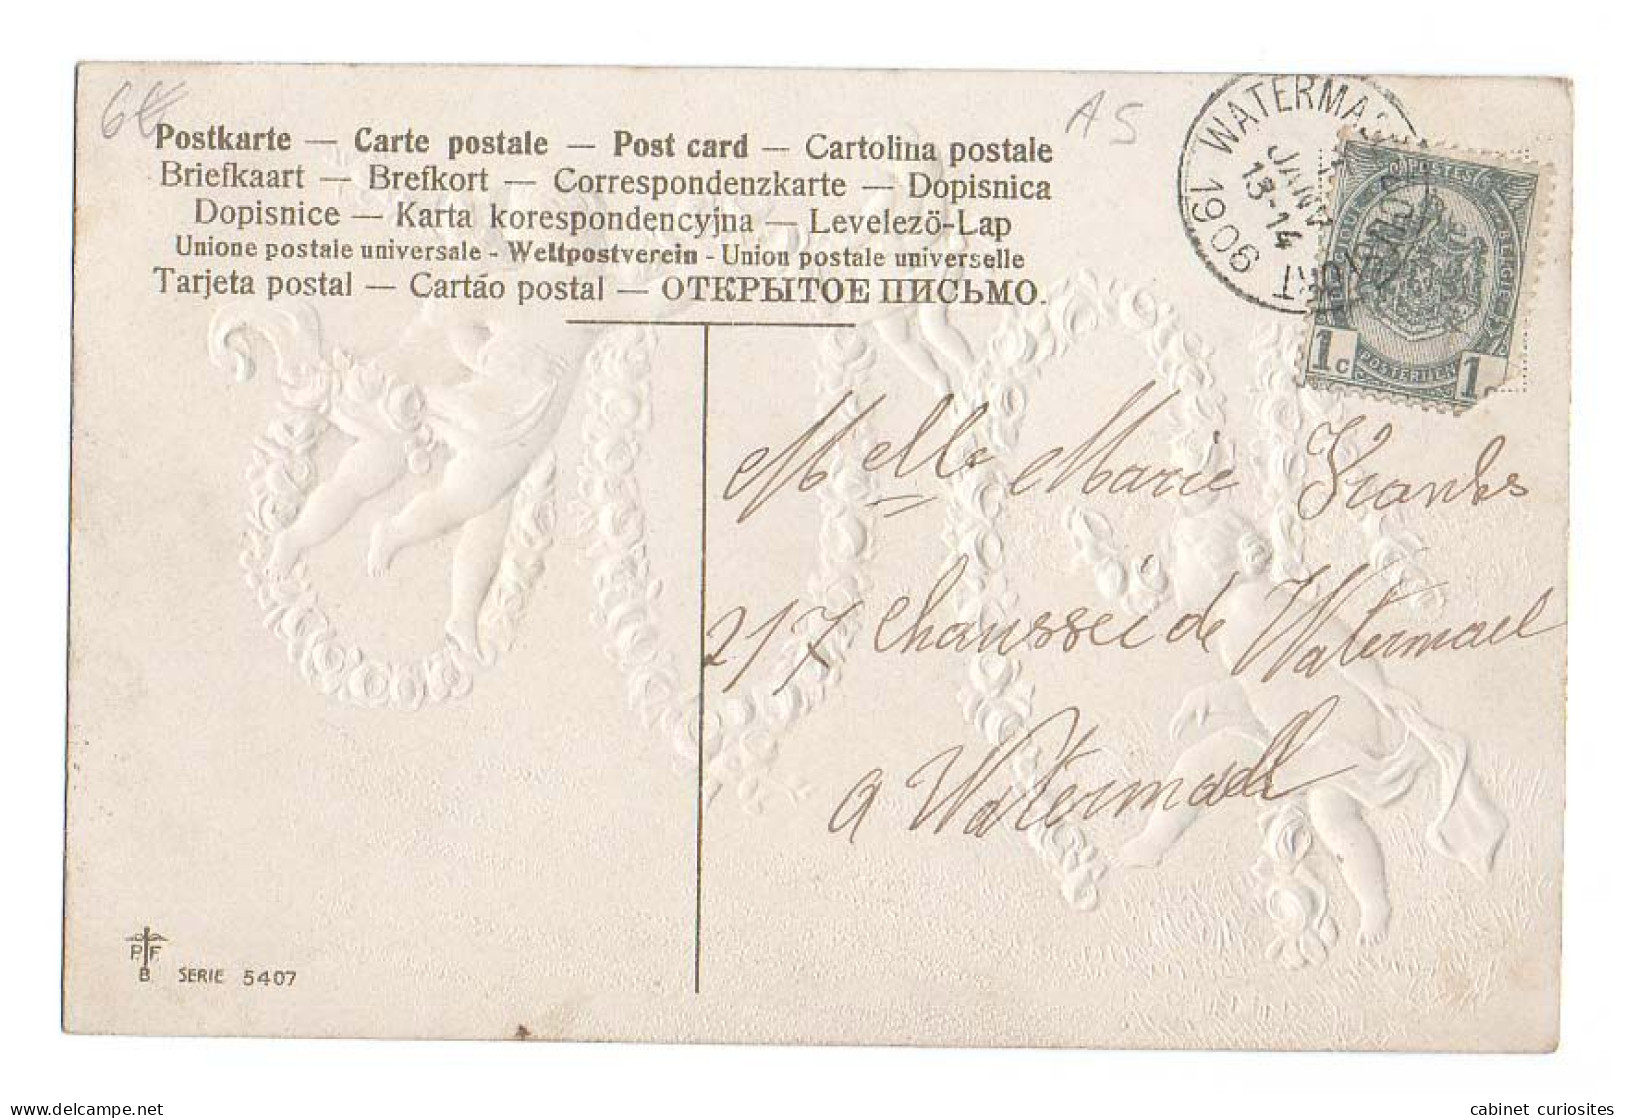 6€
AS
Postkarte — Carte postale — Post card — Cartolina postale
Briefkaart — Brefkort — Correspondenzkarte — Dopisnica
Dopisnice — Karta korespondencyjna — Levelezö-Lap
Unione postale universale - Weltpostverein - Union postale universelle
Tarjeta postal — Cartáo postal — ОТКРЫТОЕ ПИСЬМО.
JANV
13-14
1906
POSTES
BELGIQUE
POSTERIJEN
1c 1c
Melle Marie
217 Chaussée de Watermael
a Watermael
P. F.
B. SERIE 5407
cabinet curiosites